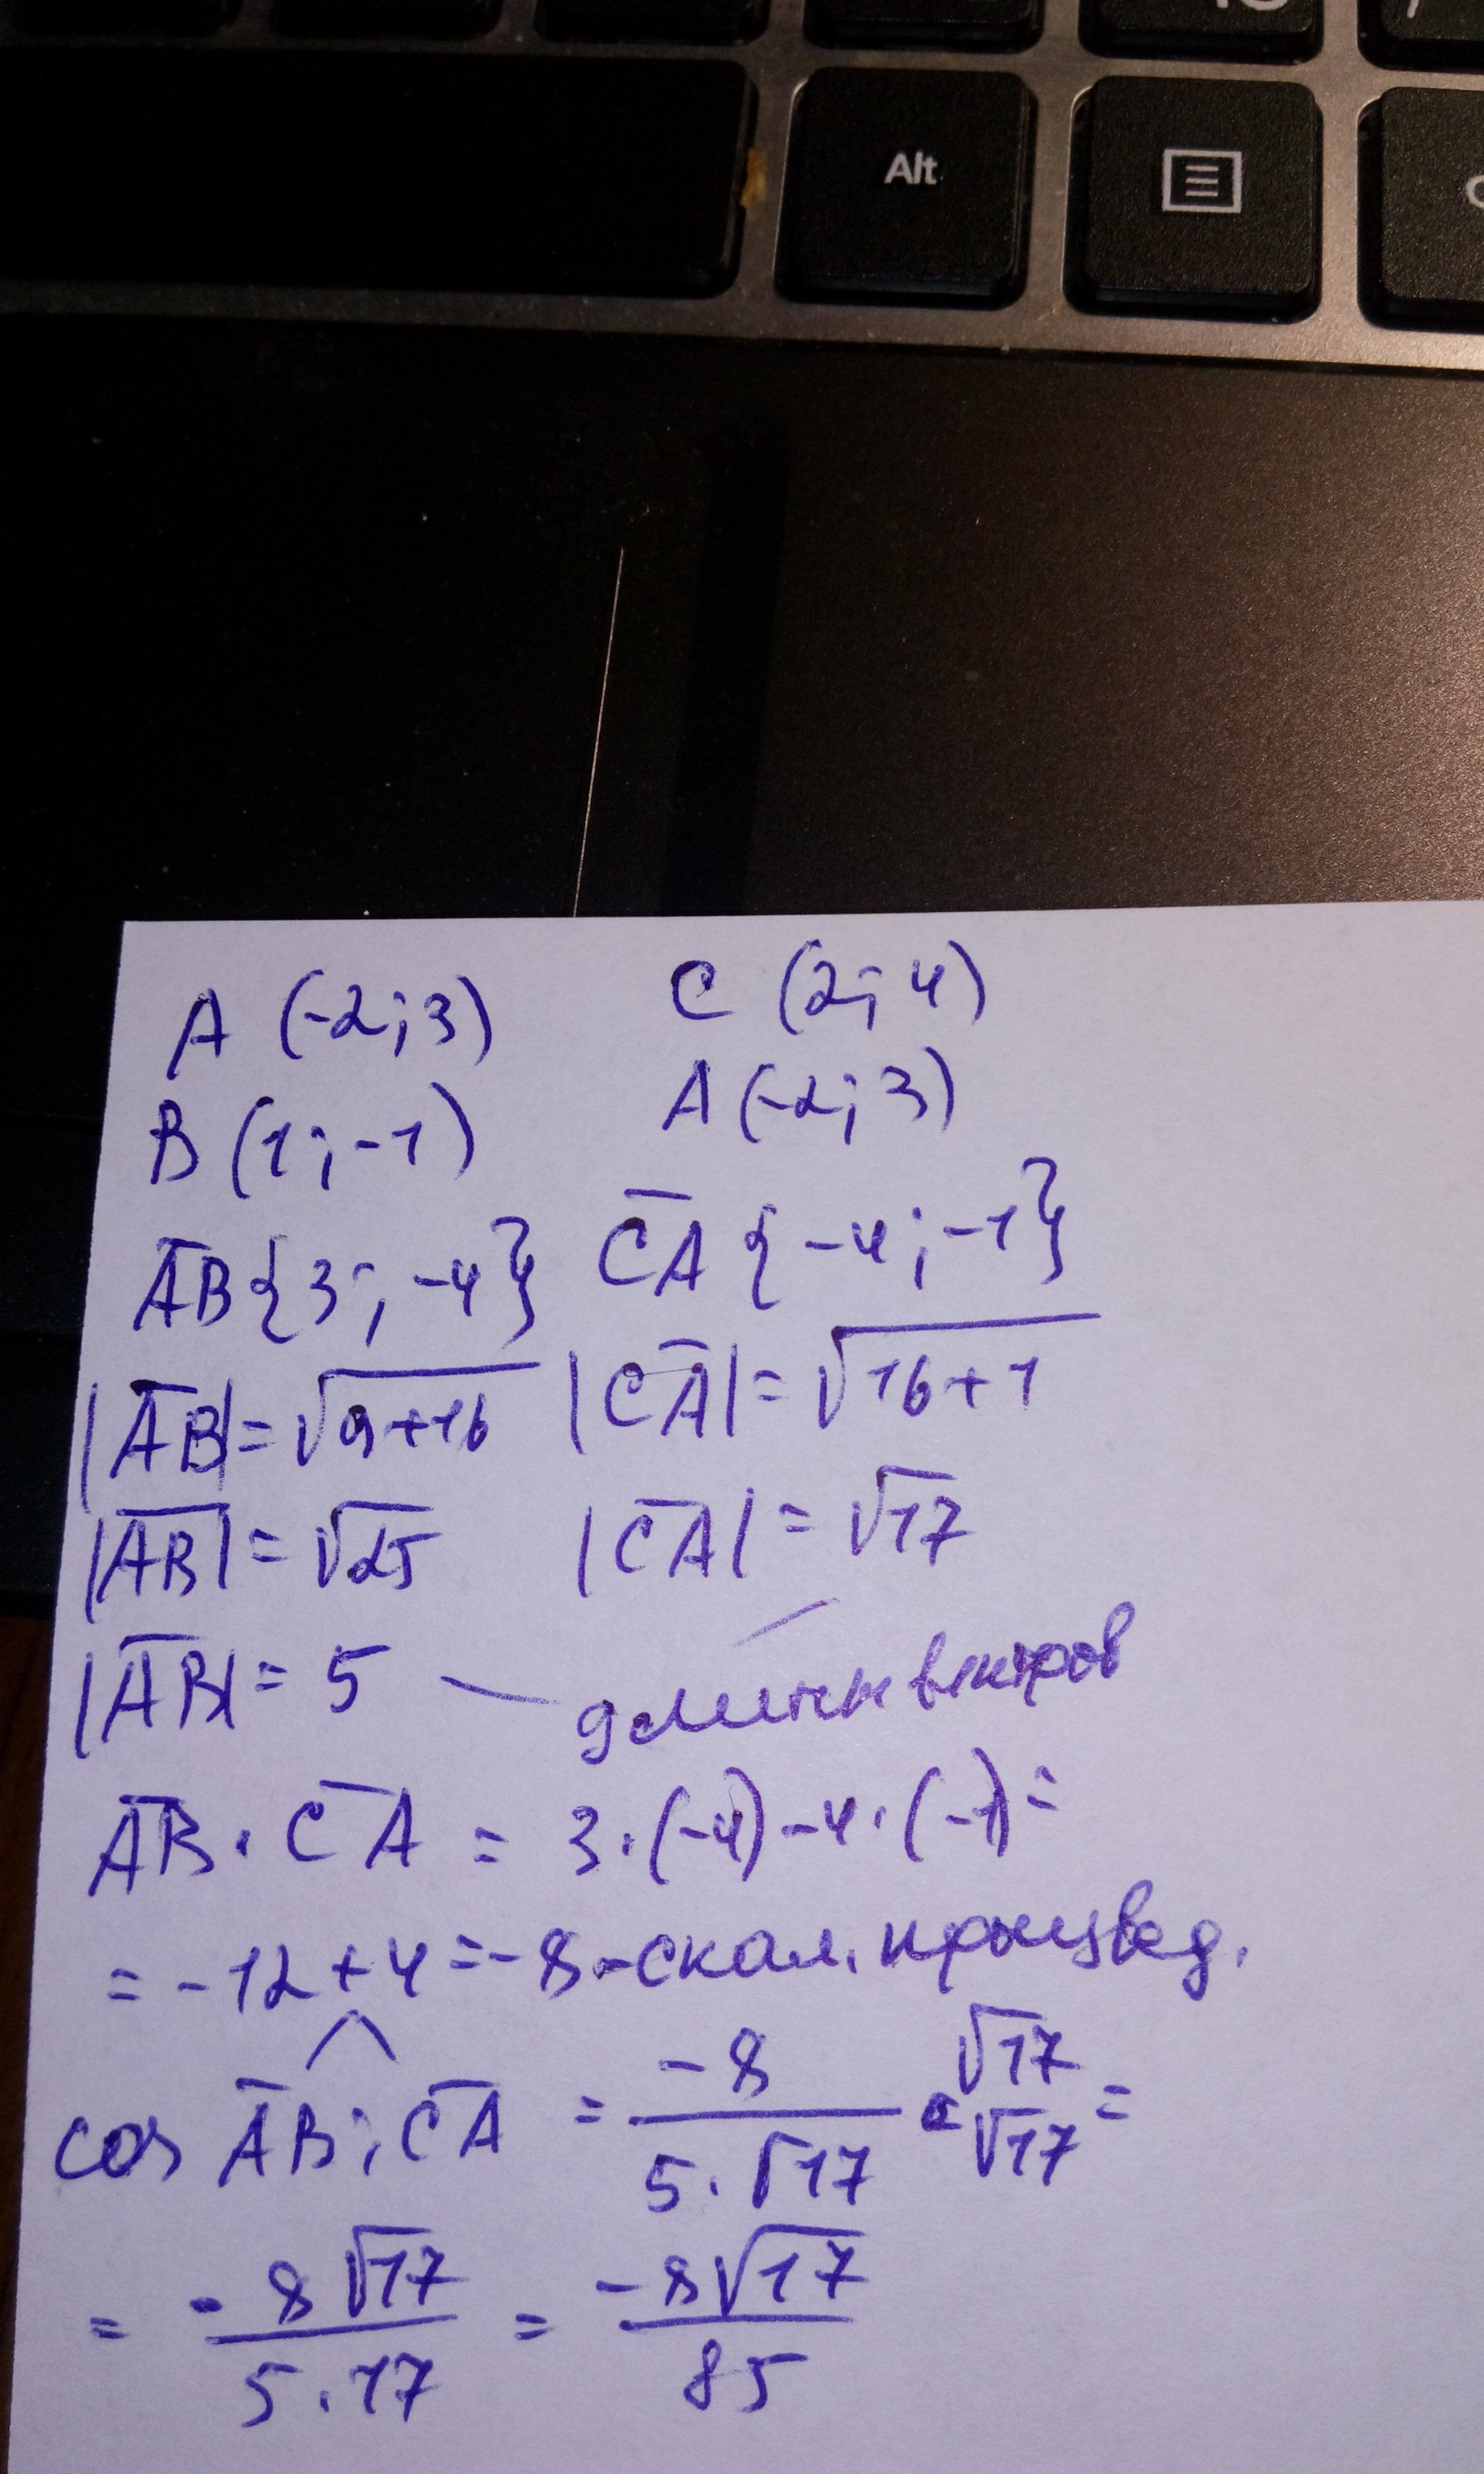 Alt
A (-2; 3) C (2; 4)
B (1; -1) A (-2; 3)
AB {3; -4} CA {-4; -1}
|AB| = √9+16 |CA| = √16+1
|AB| = √25 |CA| = √17
|AB| = 5 — длины векторов
AB · CA = 3 · (-4) - 4 · (-1) =
= -12 + 4 = -8 - скал. произвед.
cos AB; CA = -8 / 5 · √17 · √17 / √17 =
= -8√17 / 5 · 17 = -8√17 / 85